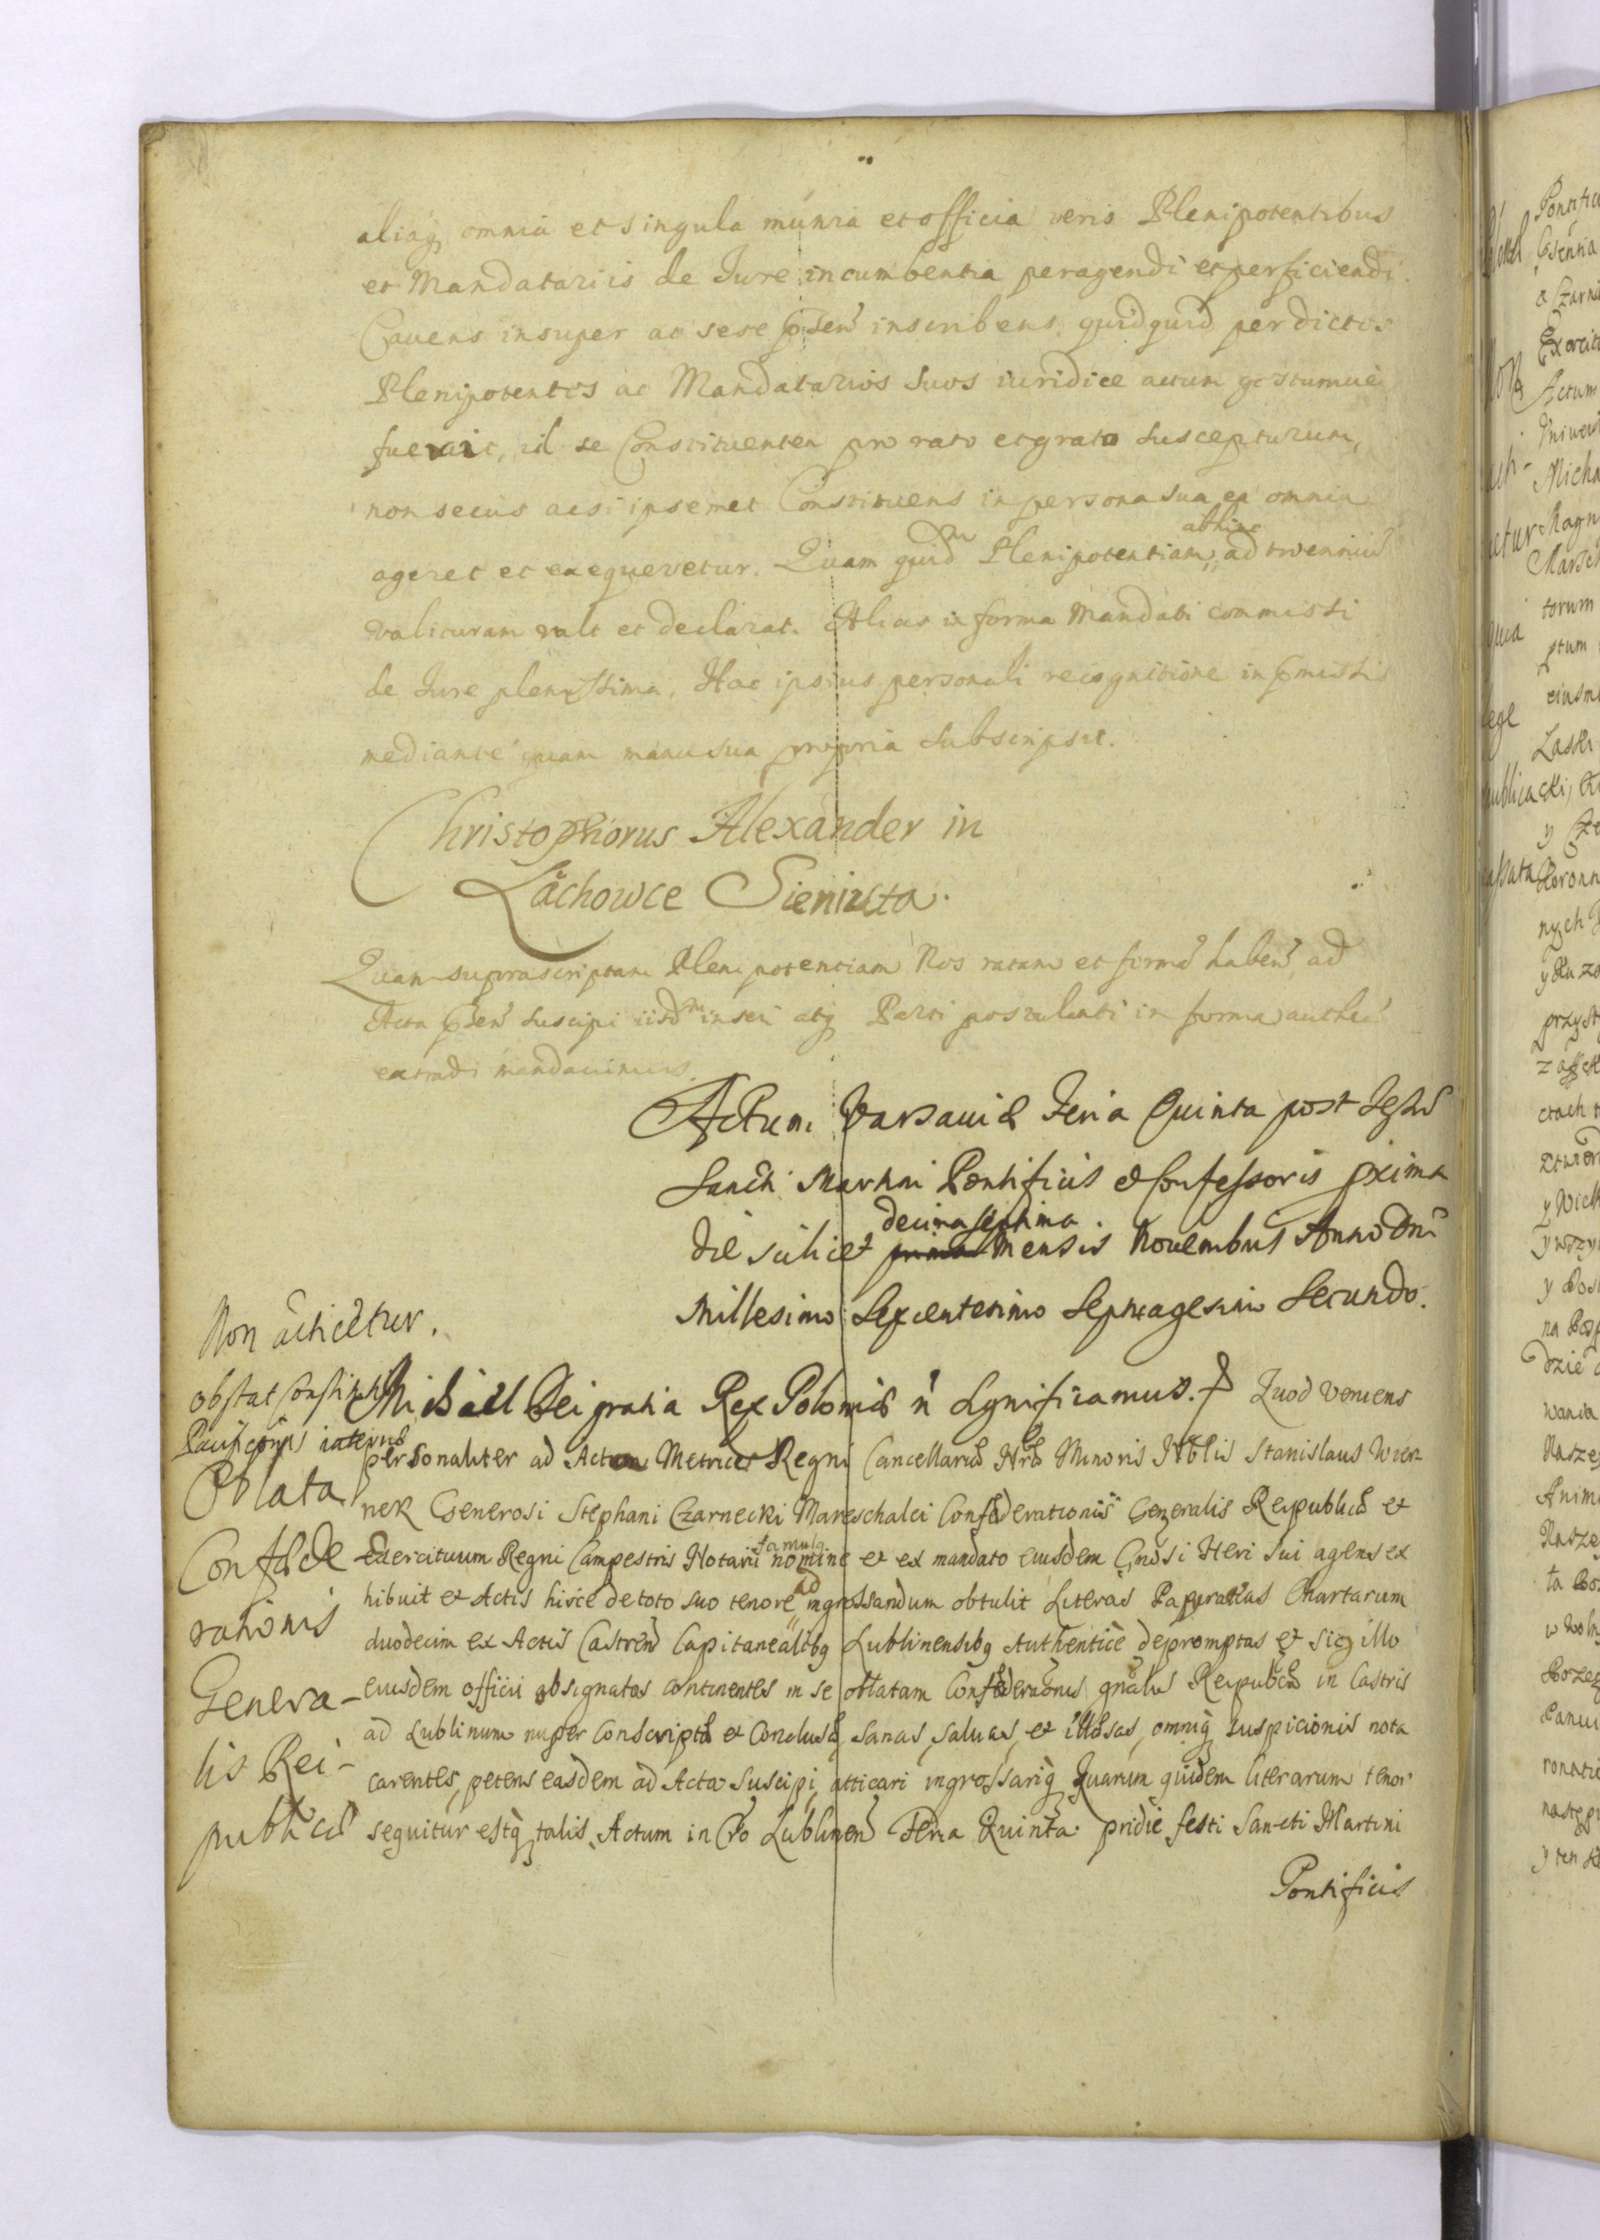 aliaq omnia et singula munia et officia veris Plenipotentibus
et Mandatariis de Jure incumbentia peragendi et perficiendi.
Cavens insuper ac sese pnsen inscribens quidquid per dictos
Plenipotentes ac Mandatarios Suos iuridice actum gestumve
fuerit, id se Constituentem pro rato et grato suscepturum,
non secus acsi ipsemet Constituens in persona sua ea omnia
abhinc
ageret et exequeretur. Quam quidm Plenipotentiam ad triennium
valituram vult et declarat. Alias in forma Mandati commissi
de Jure plenissima. Hac ipsius personali recognitione in pmissis
mediante quam manu sua propria subscripsit.
Christophorus Alexander in
Lachowce Sieniuta.
Quam suprascriptam Plenipotentiam Nos ratam et firmã haben ad
Acta psen suscipi iisdm inseri atq Parti postulanti in forma authen
extradi mandavimus.
Actum Varsaviæ Feria Quinta post festũ
Sancti Martini Pontificis et Confessoris pxima
decima septima
die scilicet prima mensis Novembris Anno Dni
Millesimo Sexcentesimo Septuagesimo Secundo.
Non acticetur.
obstat
Oblata
Confæde
rationis
Genera-
lis Rei-
publicæ
Michael Dei gratia Rex Poloniæ n Significamus. Quod veniens
personaliter ad Acta Metrices Regni Cancellariæ Nræ Minoris Nblis Stanislaus Wier
nek Generosi Stephani Czarnecki Mareschalci Confæderationis Generalis Reipublicæ et
famulq
exercituum Regni Campestris Notarii nomine et ex mandato eiusdem Gnosi Heri Sui agens ex
ad
hibuit et Actis hisce de toto suo tenore ingrossandum obtulit Literas Papiraceas Chartarum
duodecim ex Actis Castren Capitanealibq Lublinensibq Authentice depromptas et sigillo
eiusdem officii obsignatas continentes in se oblatam Confæderaonis gnalis Reipublcæ in Castris
ad Lublinum nuper conscriptæ et Conclusæ, sanas, salvas, et illæsas, omniq suspicionis nota
carentes, petens easdem ad Acta suscipi, atticari ingrossariq Quarum quidem literarum tenor
sequitur estq talis. Actum in Cro Lublinen Feria Quinta pridie festi Sancti Martini
Pontificis